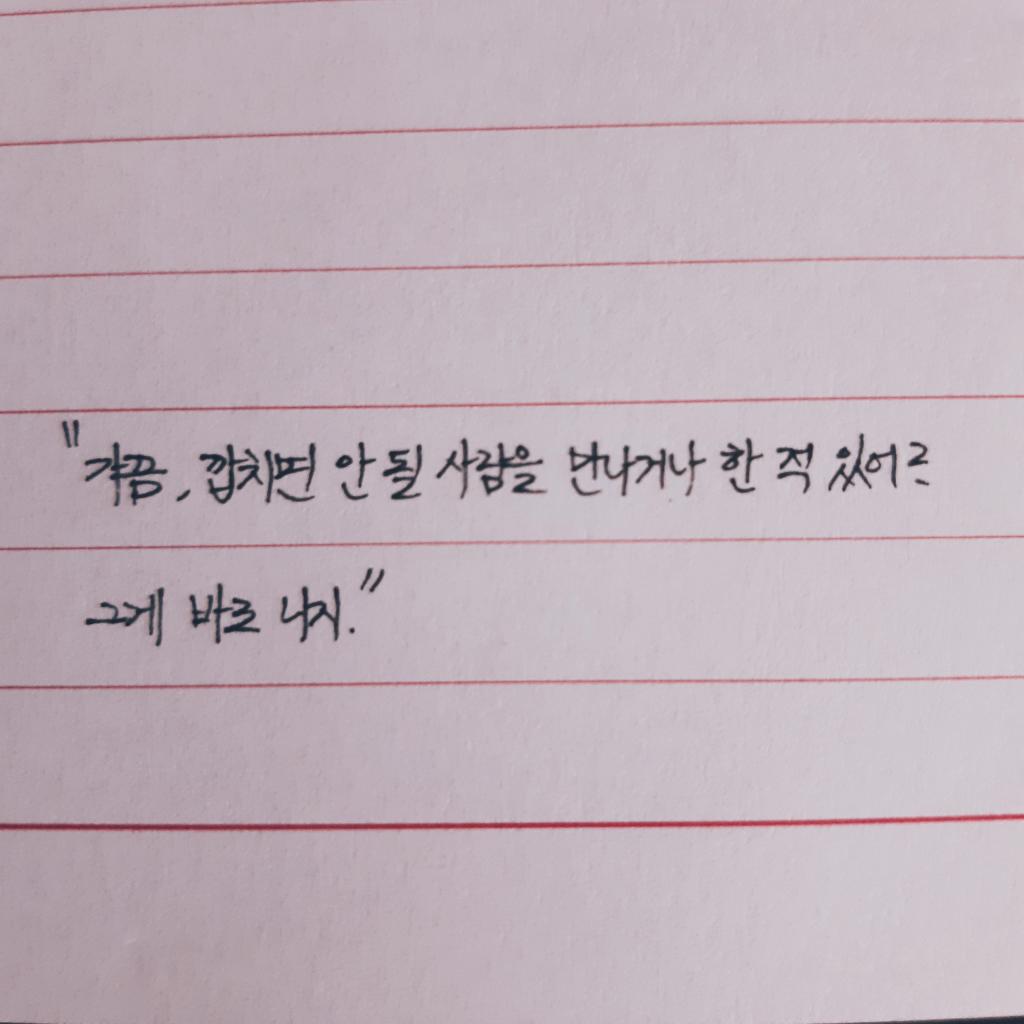 "가끔, 깝치면 안 될 사람을 만나거나 한 적 있어?
그게 바로 나지."